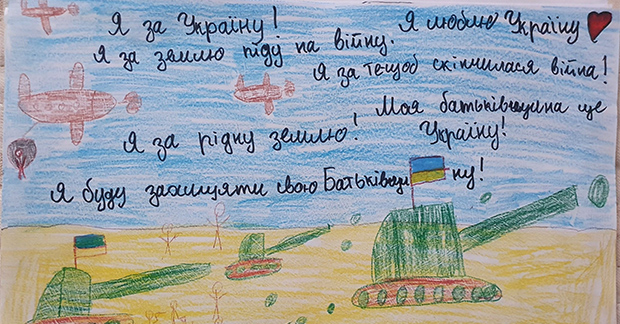 Я за Україну!
Я люблю Україну
Я за землю піду на війну.
Я за те щоб скінчилася війна!
Моя батьківщина це
Україну!
Я за рідну землю!
Я буду захищяти свою Батьківщину!